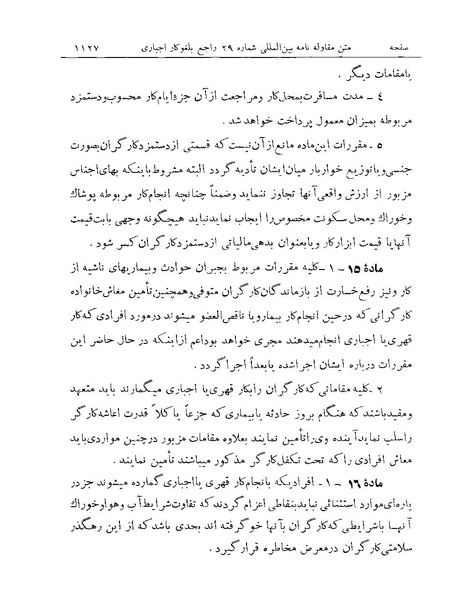 صفحه متن مقاوله نامه بین‌المللی شماره ۲۹ راجع بلغوکار اجباری ۱۱۲۷
یامقامات دیگر .
۴ ـ مدت مسافرت بمحل‌کار ومراجعت ازآن جزءایام‌کار محسوب ودستمزد
مربوطه بمیزان معمول پرداخت خواهد شد .
۵ ـ مقررات این‌ماده مانع‌ازآن‌نیست که قسمتی ازدستمزدکارگران‌بصورت
جنسی ویاتوزیع خواربار میان‌ایشان تأدیه‌گردد البته مشروط باینکه بهای‌اجناس
مزبور از ارزش واقعی‌آنها تجاوز ننماید وضمناً چنانچه انجام‌کار مربوطه پوشاك
وخوراك ومحل‌سکونت مخصوص‌را ایجاب نماید نباید هیچگونه وجهی بابت‌قیمت
آنهایا قیمت ابزارکار ویابعنوان بدهی‌مالیاتی ازدستمزدکارگران کسر شود .
مادهٔ ۱۵ ـ ۱ ـ کلیه مقررات مربوط بجبران حوادث وبیماریهای ناشیه از
کار ونیز رفع‌خسارت از بازماندگان‌کارگران متوفی‌وهمچنین‌تأمین معاش‌خانواده
کارگرانی که درحین انجام‌کار بیمارویا ناقص‌العضو میشوند درمورد افرادی‌که‌کار
قهری‌یا اجباری انجام‌میدهند مجری خواهد بوداعم ازاینکه در حال حاضر این
مقررات درباره ایشان اجراشده یابعداً اجراگردد .
۲ ـ کلیه مقاماتی‌که‌کارگران رابکار قهری یا اجباری میگمارند باید متعهد
ومقیدباشندکه هنگام بروز حادثه یابیماری‌که جزءاً یاکلاً قدرت اعاشه‌کارگر
راسلب نمایدآینده وی‌راتأمین نمایند بعلاوه مقامات مزبور درچنین مواردی‌باید
معاش افرادی راکه تحت تکفل‌کارگر مذکور میباشند تأمین نمایند .
مادهٔ ۱۶ ـ ۱ ـ افرادیکه بانجام‌کار قهری یااجباری گمارده میشوند جزدر
پاره‌ای‌موارد استثنائی نبایدبنقاطی اعزام‌گردندکه تفاوت‌شرایط‌آب وهواوخوراك
آنهـا باشرایطی‌که‌کارگران بآنها خوگرفته اند بحدی باشدکه از این رهگذر
سلامتی‌کارگران درمعرض مخاطره قرارگیرد .